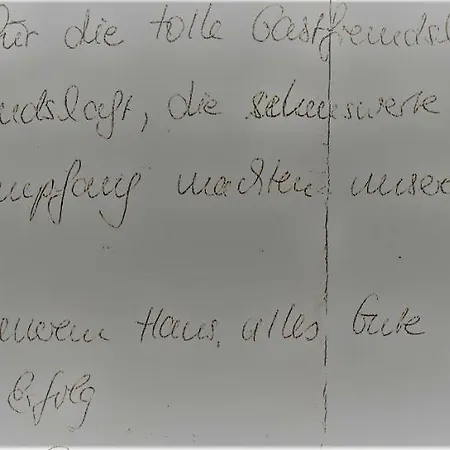 für die tolle Gastfreundsc
ndschaft, die sehenswerte
mpfang machten unser
eurem Haus, alles Gute
Erfolg